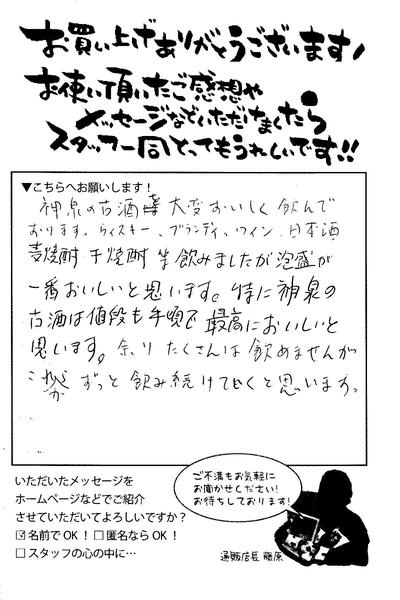 お買い上げありがとうございます!
お使い頂いたご感想や
メッセージなどいただけましたら
スタッフ一同とってもうれしいです!!
▼こちらへお願いします!
神泉の古酒 大変おいしく飲んで
おります。ウィスキー、ブランディ、ワイン、日本酒
麦焼酎 芋焼酎 等飲みましたが泡盛が
一番おいしいと思います。特に神泉の
古酒は値段も手頃で最高においしいと
思います。余りたくさんは飲めませんが
これからずっと飲み続けていくと思います。
いただいたメッセージを
ホームページなどでご紹介
させていただいてよろしいですか?
☑名前でOK! □匿名ならOK!
□スタッフの心の中に…
ご不満もお気軽に
お聞かせください!
お待ちしております!
通販店長 藤原